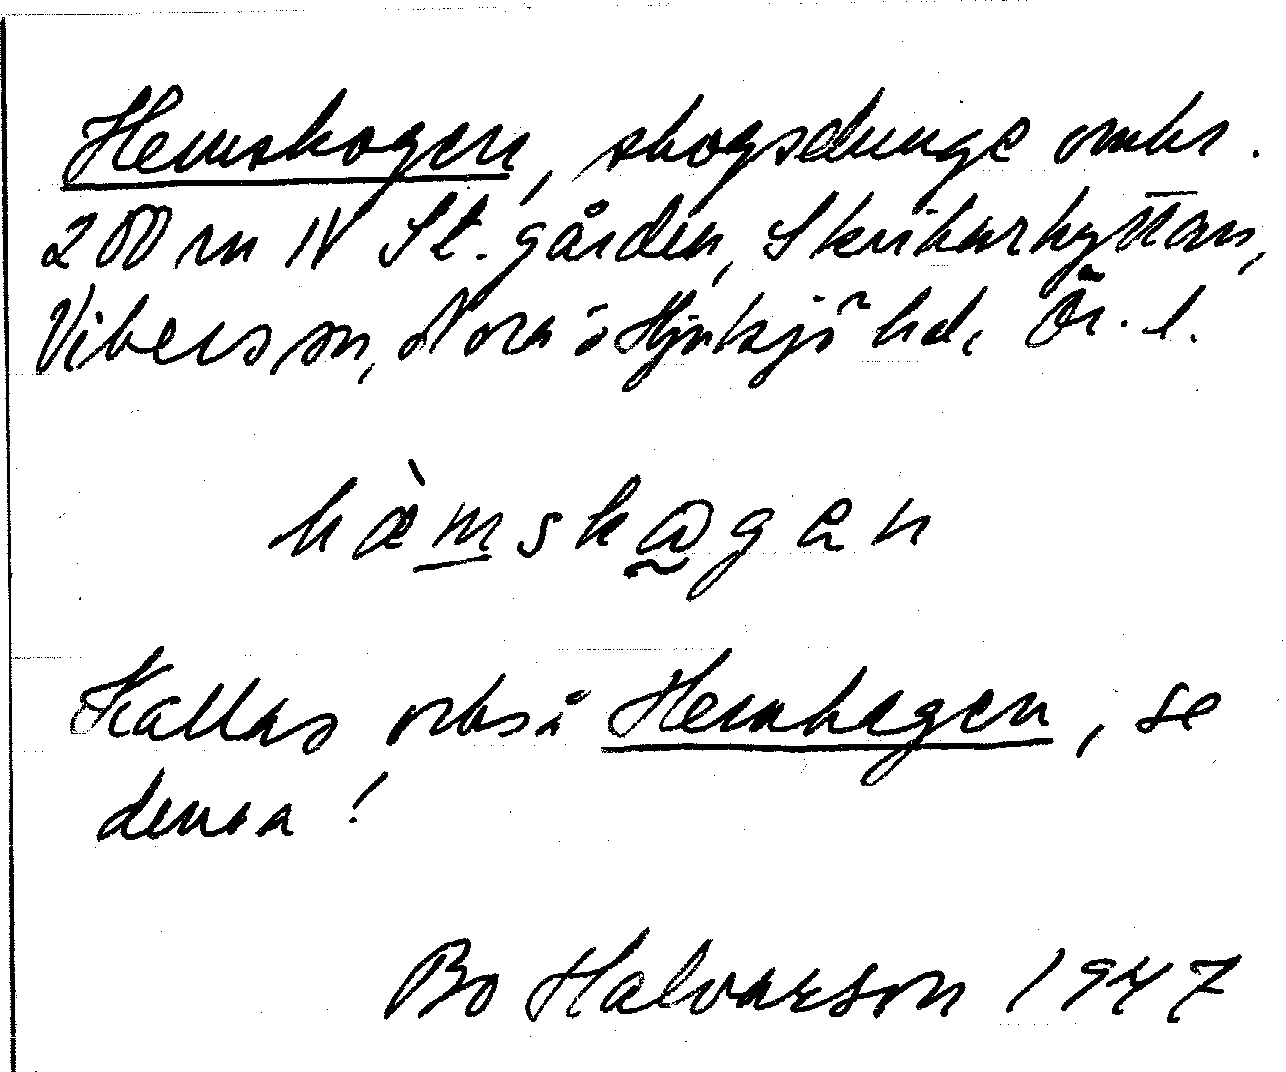 Hemskogen, skogsdunge omkr.
200 m N St. gården, Skrikarhyttan,
Vibers sn, Nora o Hjulsjö hd, Ör. l.
hæ̀mskωgan
Kallas också Hemhagen, se
denna!
Bo Halvarson 1947